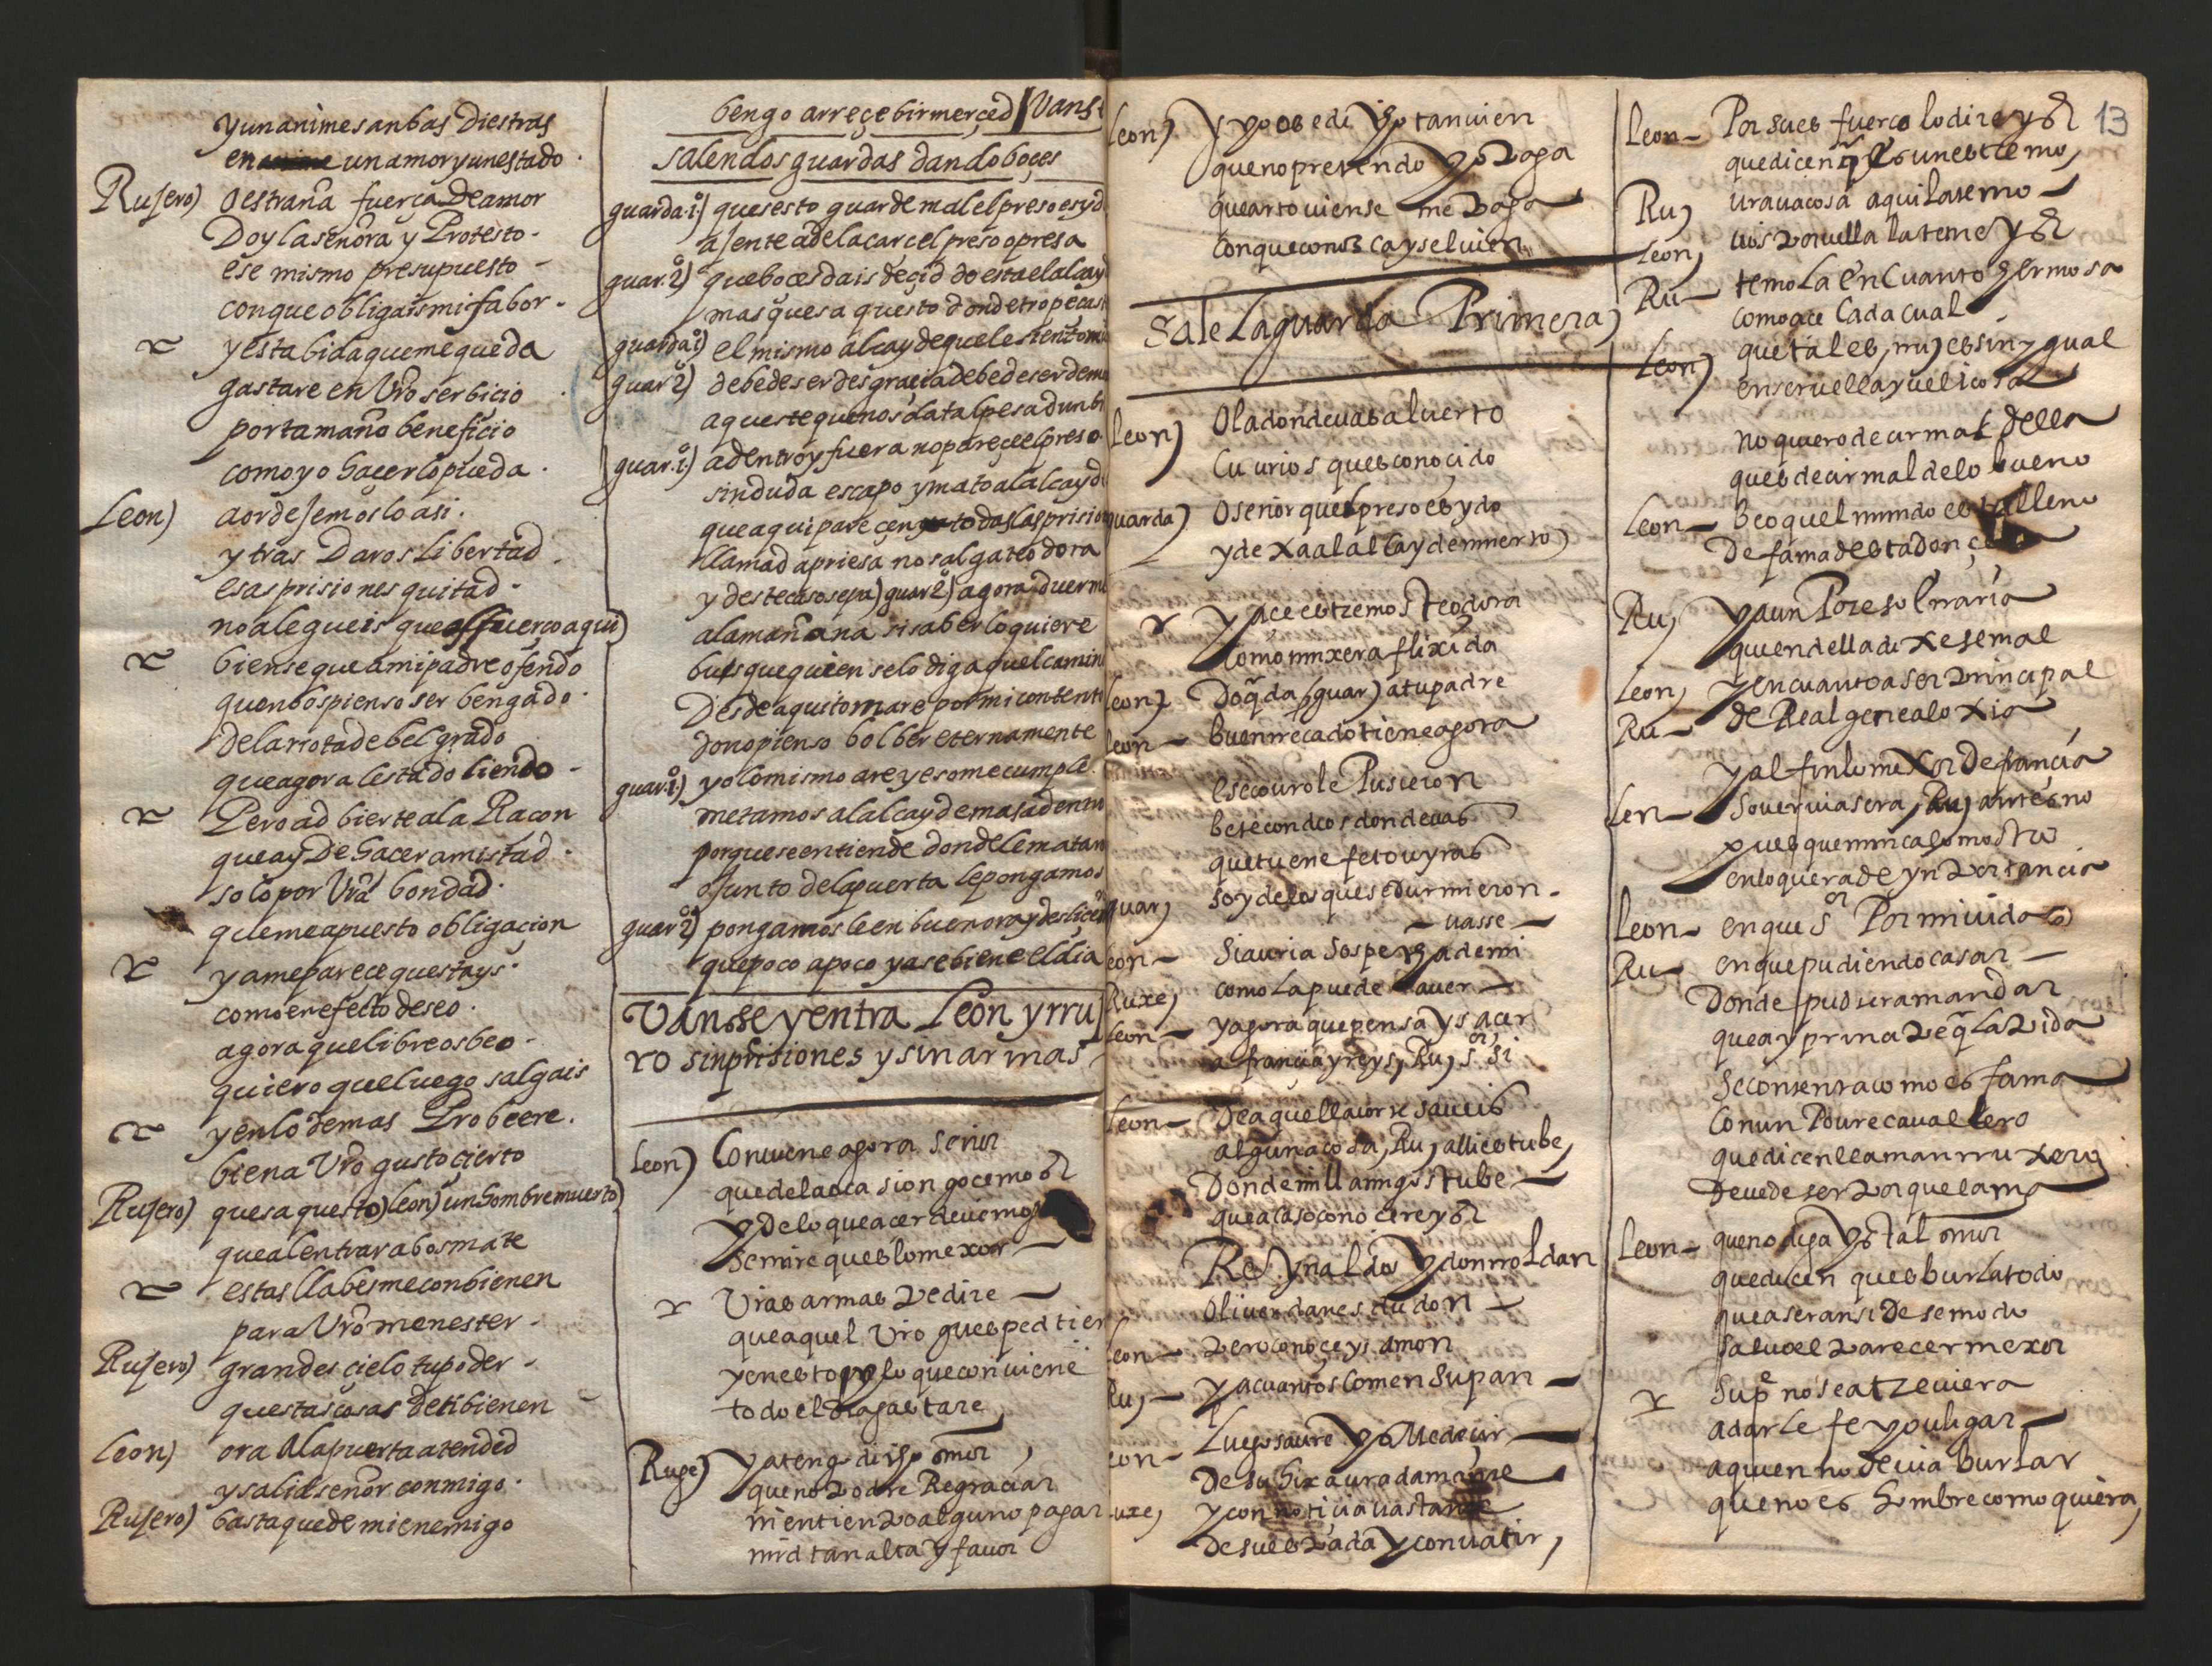 yunanimes anbas Diestras
en un amor y un estado
Rujero) o estraña fuerça De amor
Doy la señora y Protesto
ese mismo presupuesto
con que obligais mi fabor
y esta bida que me queda
gastare en Vro serbicio
por tamaño beneficio
como yo hacer lo pueda
Leon) aor dejemos lo asi
y tras Daros Libertad
esas prisiones quitad
no alegueis que esfuerço aqui
bien se que a mi padre ofendo
quenbos pienso ser bengado
de la rrota de belgrado
que agora lestado
Pero ad bierte a la Raçon
que ay De hacer amistad
solo por Vra bondad
que me a puesto obligaçion
ya me pareçe questays
como en efecto deseo
agora que libre os beo
quiero que luego salgais
y en lo demas Probeere
bien a Vro gusto çierto
Rujero) ques aquesto) leon) un hombre muerto)
que al entrar a bos mate
estas llabes me conbienen
para Vro menester
Rujero) grandes çielo tu poder
questas cosas de ti bienen
Leon) ora a la puerta atended
y salid señor conmigo
Rujero) basta que de mi enemigo
bengo arreçebir merçed / Vans
salen dos guardas dando boçes
guarda 1º) ques esto guarde mal el preso es yd
a jente a de la carcel preso o presa
guar. 2º) que boçes dais deçid do esta el alcayd
mas ques aquesto donde tropeças
guarda 1º) el mismo alcayde queles
guar 2º) debe de ser desgraçia debe de ser
aqueste que nos da tal pesadunb
guar. 1º) adentro y fuera no pareçe el preso
sin duda escapo y mato al alcayd
que aqui pareçen todas las prision
llamad apriesa no salga teodora
y deste caso sepa) guar 2º) agora duerme
a la mañana si saberlo quiere
busque quien se lo diga quel camin
Desde aqui tomare por mi contento
do no pienso bolber eternamente
guar. 1º) yo lo mismo are y eso me cumple
metamos al alcayde mas adentro
porque se entiende donde le matan
o junto de la puerta le pongamos
guar 2º) pongamosle en buen ora y
que poco a poco ya se biene el dia
Vanse y entra Leon y rruj
ro sin prisiones y sin armas
Leon) Conviene agora señor
que de la ocasion goçemos
y de lo que açer devemos
se mire ques lo mexor
Vras armas pedire
que aquel Vro guesped tier
y en esto lo que conviene
todo el dia gastare
Ruge) ya tengo di señor
que no podre Regraciar
ni entiendo alguno pagar
mrd tan alta y favor
Leon) y yo os e di tanvien
que no pretendo paga
que arto viense me paga
con que conozcays el vien
Sale La guarda Primera
Leon) Ola donde vas alverto
Cuurios ques conoçido
guarda) O señor quel preso es ydo
y dexa al alcayde muerto)
y açe estremos teodora
como muxer aflixida
leon) Do qda (guar) a tu padre
leon buen rrecado tiene agora
ese cobrole Pusieron
vete con dios donde vas
que tu enefeto
guar) soy de los que se durmieron
vasse
leon Si avria sospecha de mi
Ruxe) como la puede aver
leon y agora que pensays açer
a françia yreys, Ru) sor si
leon De aquella corte saveis
alguna cosa, Ru) alli estube,
Donde mill amigos tube
que acaso conocereys
Reynaldos y don rroldan
Oliver danes dudon
leon pero conoçeys amon
Ru) y a cuantos comen su pan
leon Luego savreys me deçir
De su hixa vradamante
Ruxe) y con notiçia vastante
De su espada y convatir,
13
Leon Por su esfuerço lo direys
que dicen ques un estremo,
Ru) vrava cosa aqui la temo
leon) vos por ella la temeys
Ru temola en cuanto hermosa
como açe cada cual
Leon) que tal es, ru) es sin ygual
en ser vella y velicosa
no quiero decir mal della
ques decir mal de lo bueno
leon beo quel mundo esta lleno
De fama desta donçella
Ru) y aun Por eso lloraria
quien della dixese mal
leon) y en cuanto a ser prinçipal
Ru de Real genealoxia
y al fin lo mexor de françia
leon soverviasera, Ru) antes no
pues que nunca lo mostro
en lo quera de ynportançia
leon en que sor Por mi vida
Ru en que pudiendo casar
Donde pudiera mandar
que ay prinçipe q la pida
se contenta como es fama
Con un Poure cavallero
que dicen llaman rruxero
Deve de ser porque le ama
Leon que no diga tal señor
que dicen ques burla todo
que a ser ansi De se modo
saliuel parecer mexor
Supe no se atreviera
a darle fe y
a quien no devia burlar
que no es hombre como quiera,